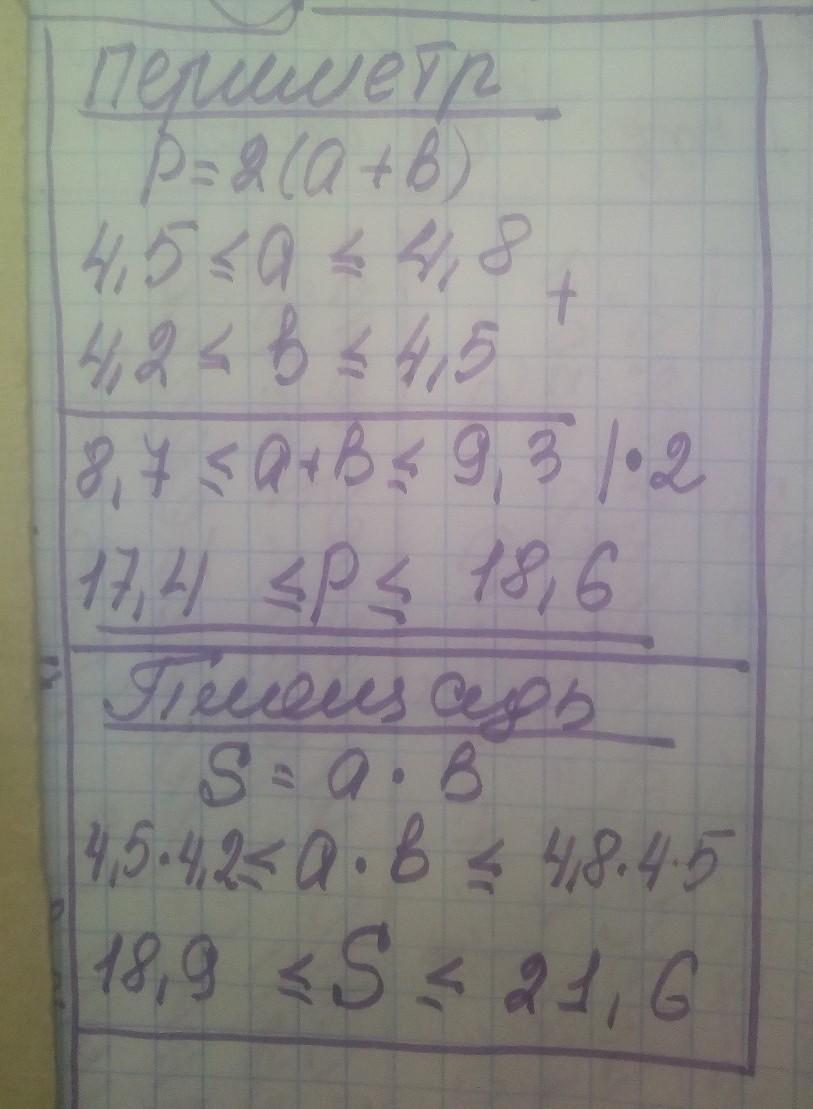 Периметр
P=2(a+b)
4,5 ≤ a ≤ 4,8
+
4,2 ≤ b ≤ 4,5
8,7 ≤ a+b ≤ 9,3 |·2
17,4 ≤ P ≤ 18,6
Площадь
S = a · b
4,5·4,2 ≤ a · b ≤ 4,8·4·5
18,9 ≤ S ≤ 21,6